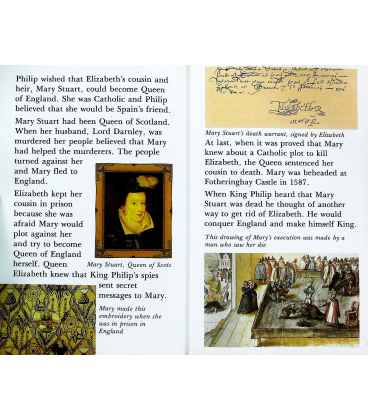 Philip wished that Elizabeth's cousin and
heir, Mary Stuart, could become Queen
of England. She was Catholic and Philip
believed that she would be Spain's friend.
Mary Stuart had been Queen of Scotland.
When her husband, Lord Darnley, was
murdered her people believed that Mary
had helped the murderers. The people
turned against her
and Mary fled to
England.
Elizabeth kept her
cousin in prison
because she was
afraid Mary would
plot against her
and try to become
Queen of England
herself. Queen
Mary Stuart, Queen of Scots
Elizabeth knew that King Philip's spies
sent secret
messages to Mary.
Mary made this
embroidery when she
was in prison in
England
Mary Stuart's death warrant, signed by Elizabeth
At last, when it was proved that Mary
knew about a Catholic plot to kill
Elizabeth, the Queen sentenced her
cousin to death. Mary was beheaded at
Fotheringhay Castle in 1587.
When King Philip heard that Mary
Stuart was dead he thought of another
way to get rid of Elizabeth. He would
conquer England and make himself King.
This drawing of Mary's execution was made by a
man who saw her die